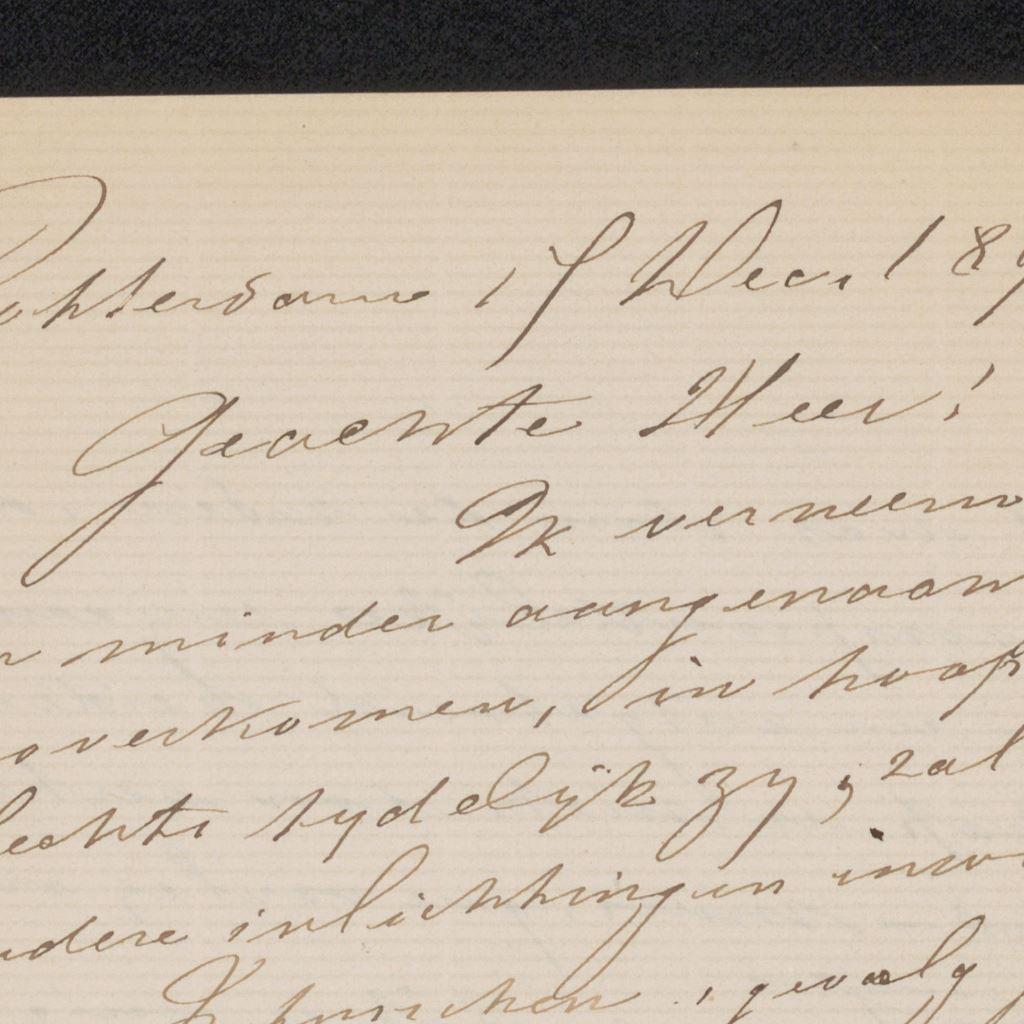 Rotterdam 17 Dec. 189
Geachte Heer!
Ik verneem
minder aangenaam
overkomen, in hoop
lechts tydelijk zy, zal
dere inlichtingen inw
gevolg